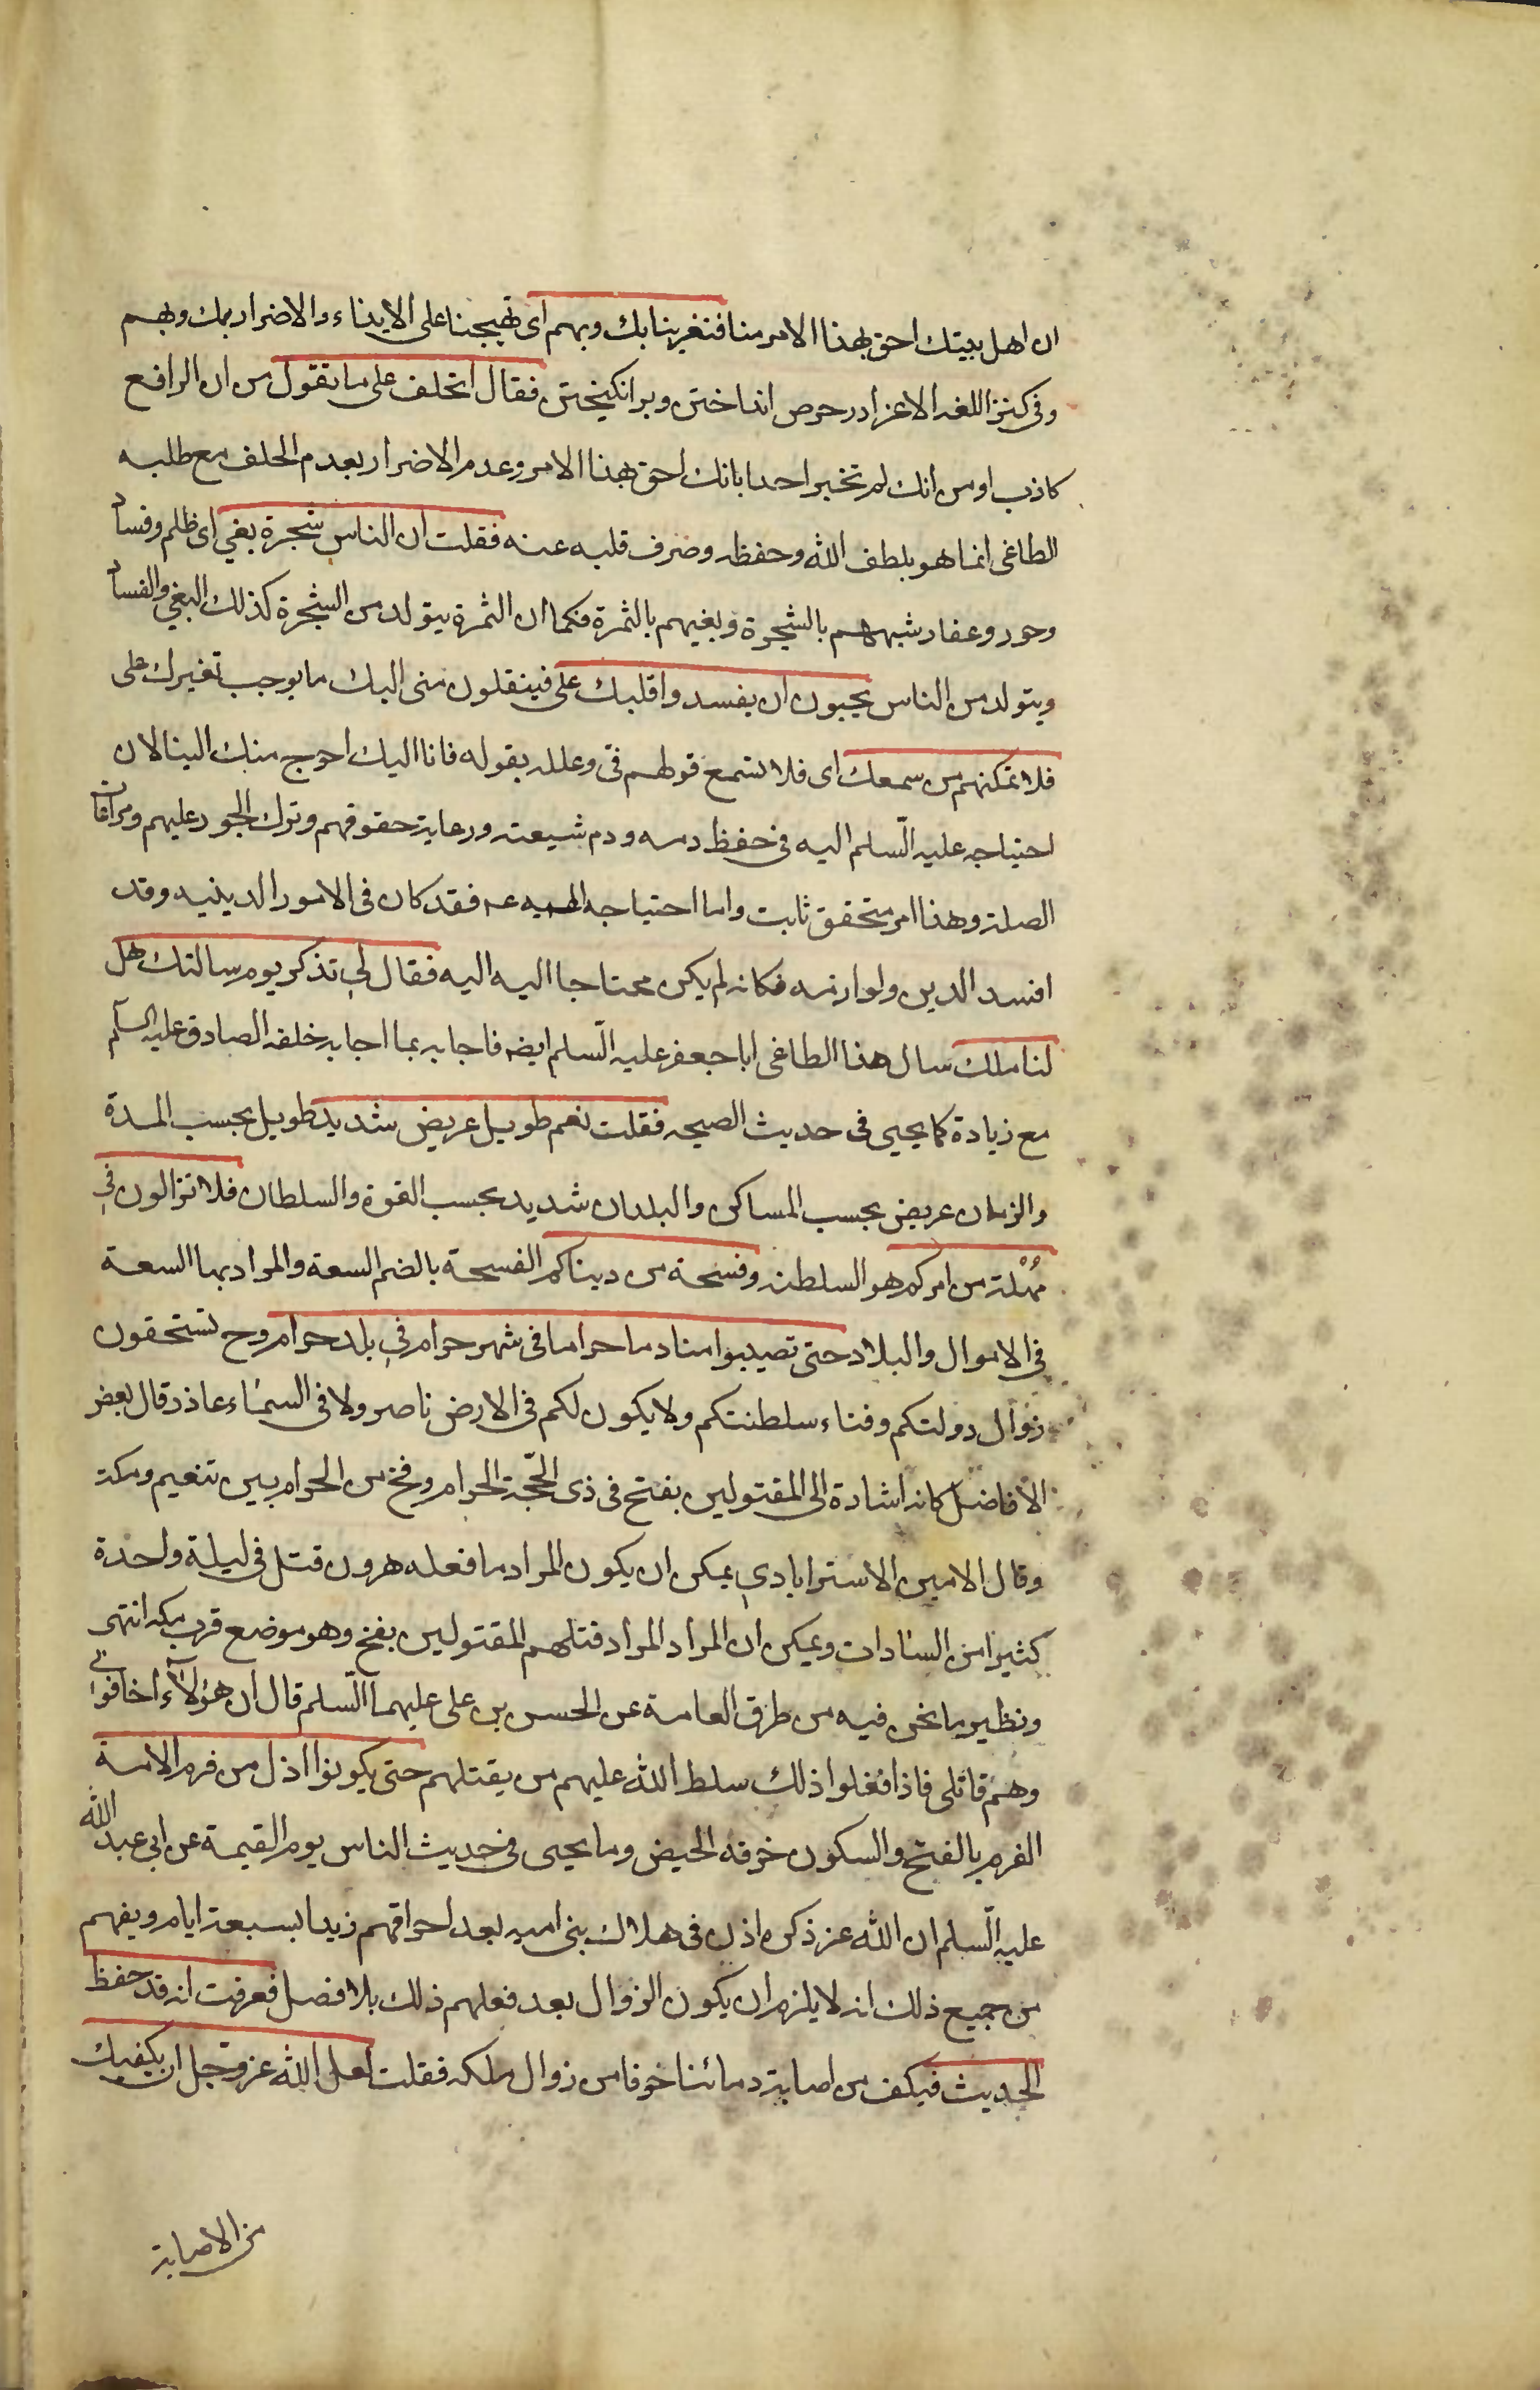 ان اهل بيتك احق بهذا الامر منا فتغرينا بك وبهم اى تهيجنا على الايذاء والاضرار بك وبهم
وفى كنز اللغه الاغرا در حرص انداختن وبر انكيختن فقال اتحلف على ما تقول من ان الرافع
كاذب او من انك لم تخبر احدا بانك احق بهذا الامر وعدم الاضرار بعدم الحلف مع طلبه
الطاغى انما هو بلطف الله وحفظه وصرف قلبه عنه فقلت ان الناس شجرة بغي اى ظلم وفساد
وجور وعفار شبههم بالشجرة وبغيهم بالثمرة فكما ان الثمرة يتولد من الشجرة كذلك البغي والفساد
ويتولد من الناس يحبون ان يفسدوا قلبك على فينقلون منى اليك ما يوجب تغيرك على
فلا تمكنهم من سمعك اى فلا تسمع قولهم فى وعلله بقوله فانا اليك احوج منك الينا لان
احتياجه عليه السلم اليه فى حفظ دمه ودم شيعته ورعاية حقوقهم وترك الجور عليهم ومراعات
الصلة وهذا امر متحقق ثابت واما احتياجه اليه عه فقد كان فى الامور الدينيه وقد
افسد الدين ولوازمه فكانه لم يكن محتاجا اليه اليه فقال لى تذكر يوم سالتك هل
لنا ملك سال هذا الطاغى ابا جعفر عليه السلم ايضه فاجابه بما اجابه خلفه الصادق عليه السلم
مع زيادة كما يجيى فى حديث الصيحه فقلت نعم طويل عريض شديد طويل بحسب المدة
والزمان عريض بحسب المساكن والبلدان شديد بحسب القوة والسلطان فلا تزالون فى
مُهْلة من امركم هو السلطنه وفسحة من دنياكم الفسحة بالضم السعة والمراد بها السعة
فى الاموال والبلاد حتى تصيبوا منا دما حراما فى شهر حرام فى بلد حرام وح تستحقون
زوال دولتكم وفناء سلطنتكم ولا يكون لكم فى الارض ناصر ولا فى السماء عاذر قال بعض
الافاضل كانه اشارة الى المقتولين بفتح فى ذى الحجّة الحرام وفخ من الحرام بين تنعيم ومكة
وقال الامين الاسترابادي يمكن ان يكون المراد ما فعله هرون قتل فى ليلة واحدة
كثيرا من السادات ويمكن ان المراد المراد قتلهم المقتولين بفخ وهو موضع قرب مكه انتهى
ونظير ما نحن فيه من طرق العامة عن الحسن بن على عليهما السلم قال ان هؤلاء اخافونى
وهم قاتلى فاذا فعلوا ذلك سلط الله عليهم من يقتلهم حتى يكونوا اذل من فرم الامة
الفرم بالفتح والسكون خرقة الحيض وما يجيى فى حديث الناس يوم القيمة عن ابى عبد الله
عليه السلم ان الله عز ذكره اذن فى هلاك بنى اميه بعد احراقهم زيدا بسبعة ايام ويفهم
من جميع ذلك انه لا يلزم ان يكون الزوال بعد فعلهم ذلك بلا فصل فعرفت انه قد حفظ
الحديث فيكف من اصابة دمائنا خوفا من زوال ملكه فقلت لعل الله عز وجل ان يكفيك
من الاصابة